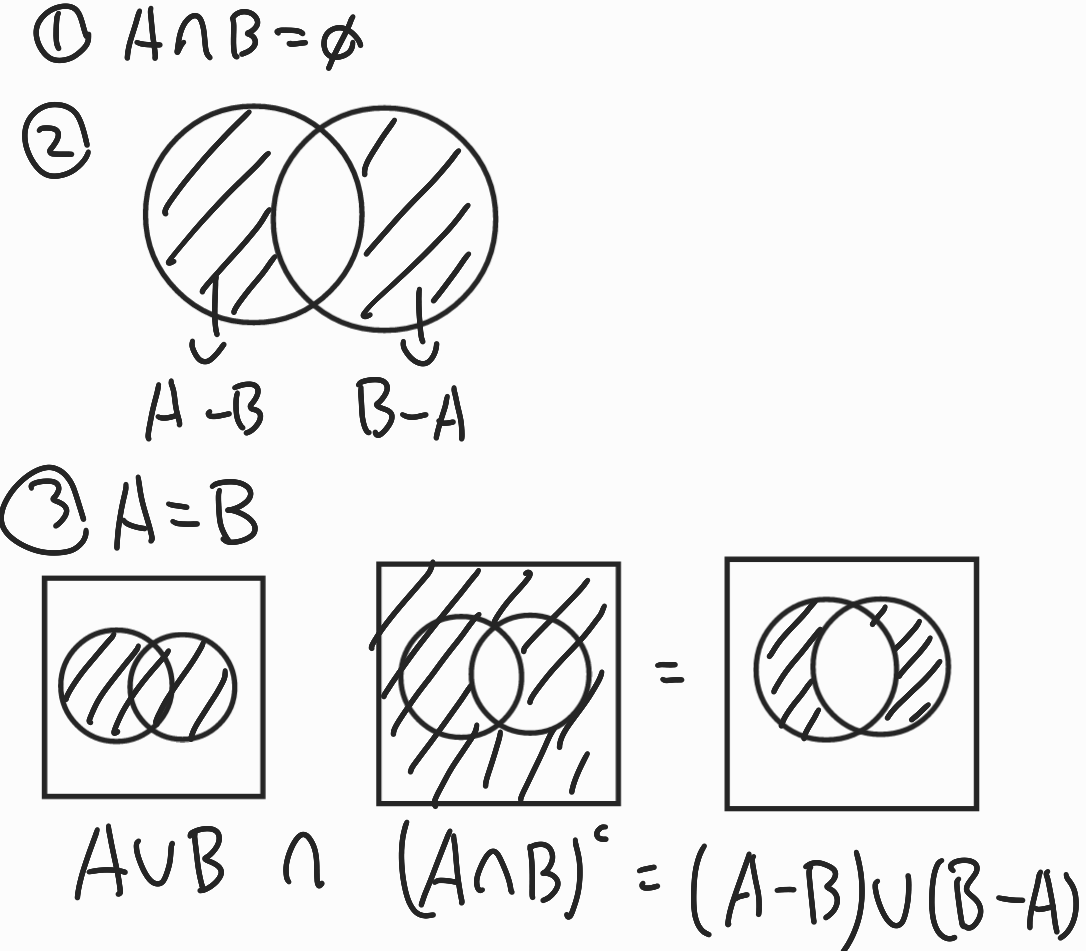 ① A∩B=∅
②
A-B B-A
③ A=B
=
A∪B ∩ (A∩B)ᶜ = (A-B)∪(B-A)